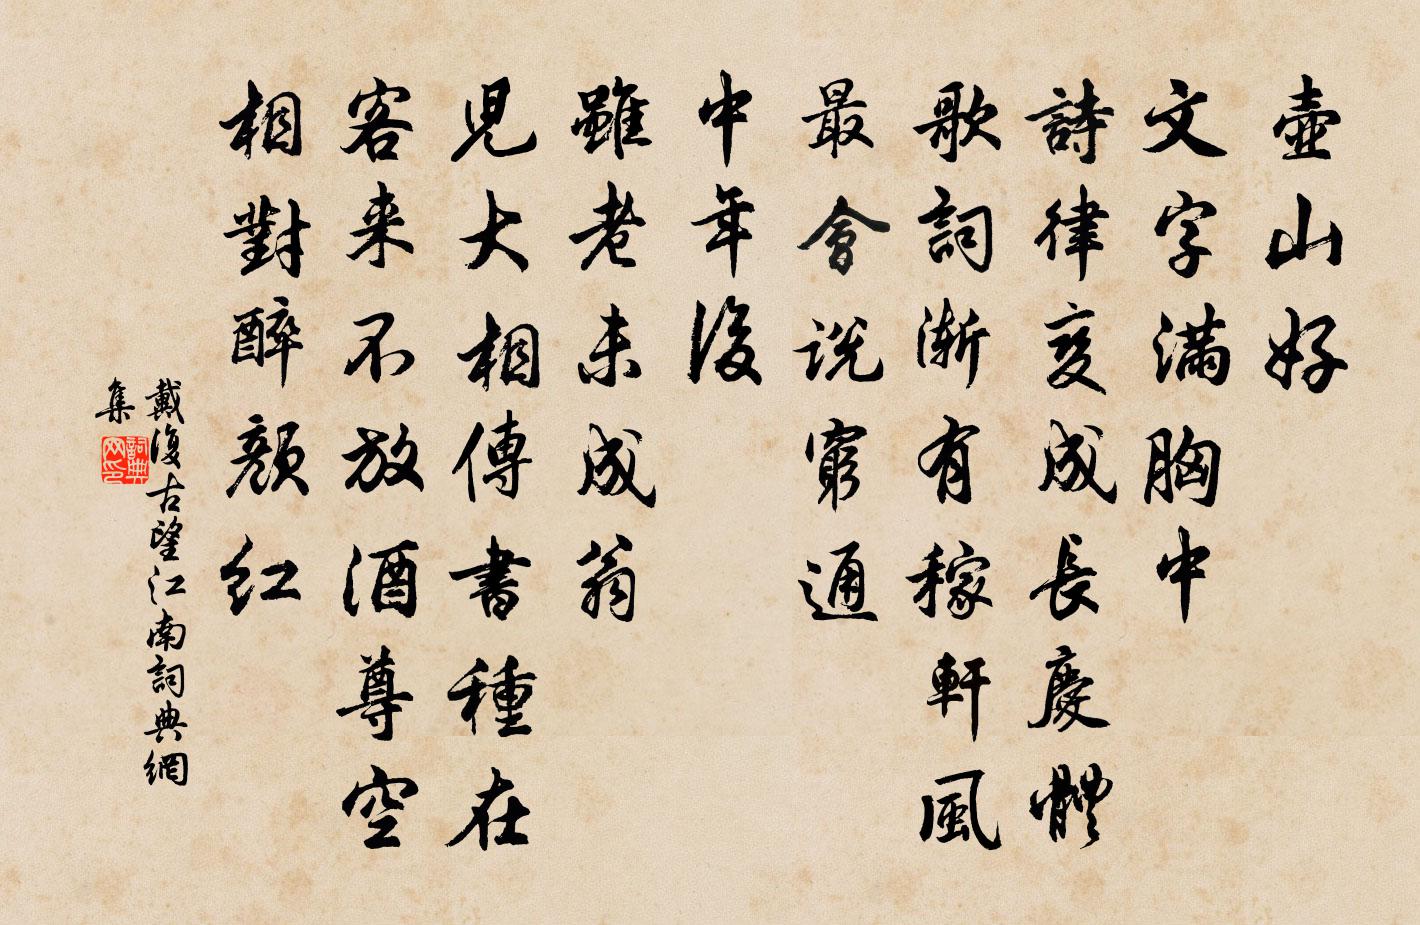 壺山好
文字滿胸中
詩律变成長慶體
歌詞漸有稼軒風
最會説窮通
中年後
雖老未成翁
児大相傳書種在
客来不放酒尊空
相對醉顔紅
戴復古望江南詞典網
集
詞典
网印